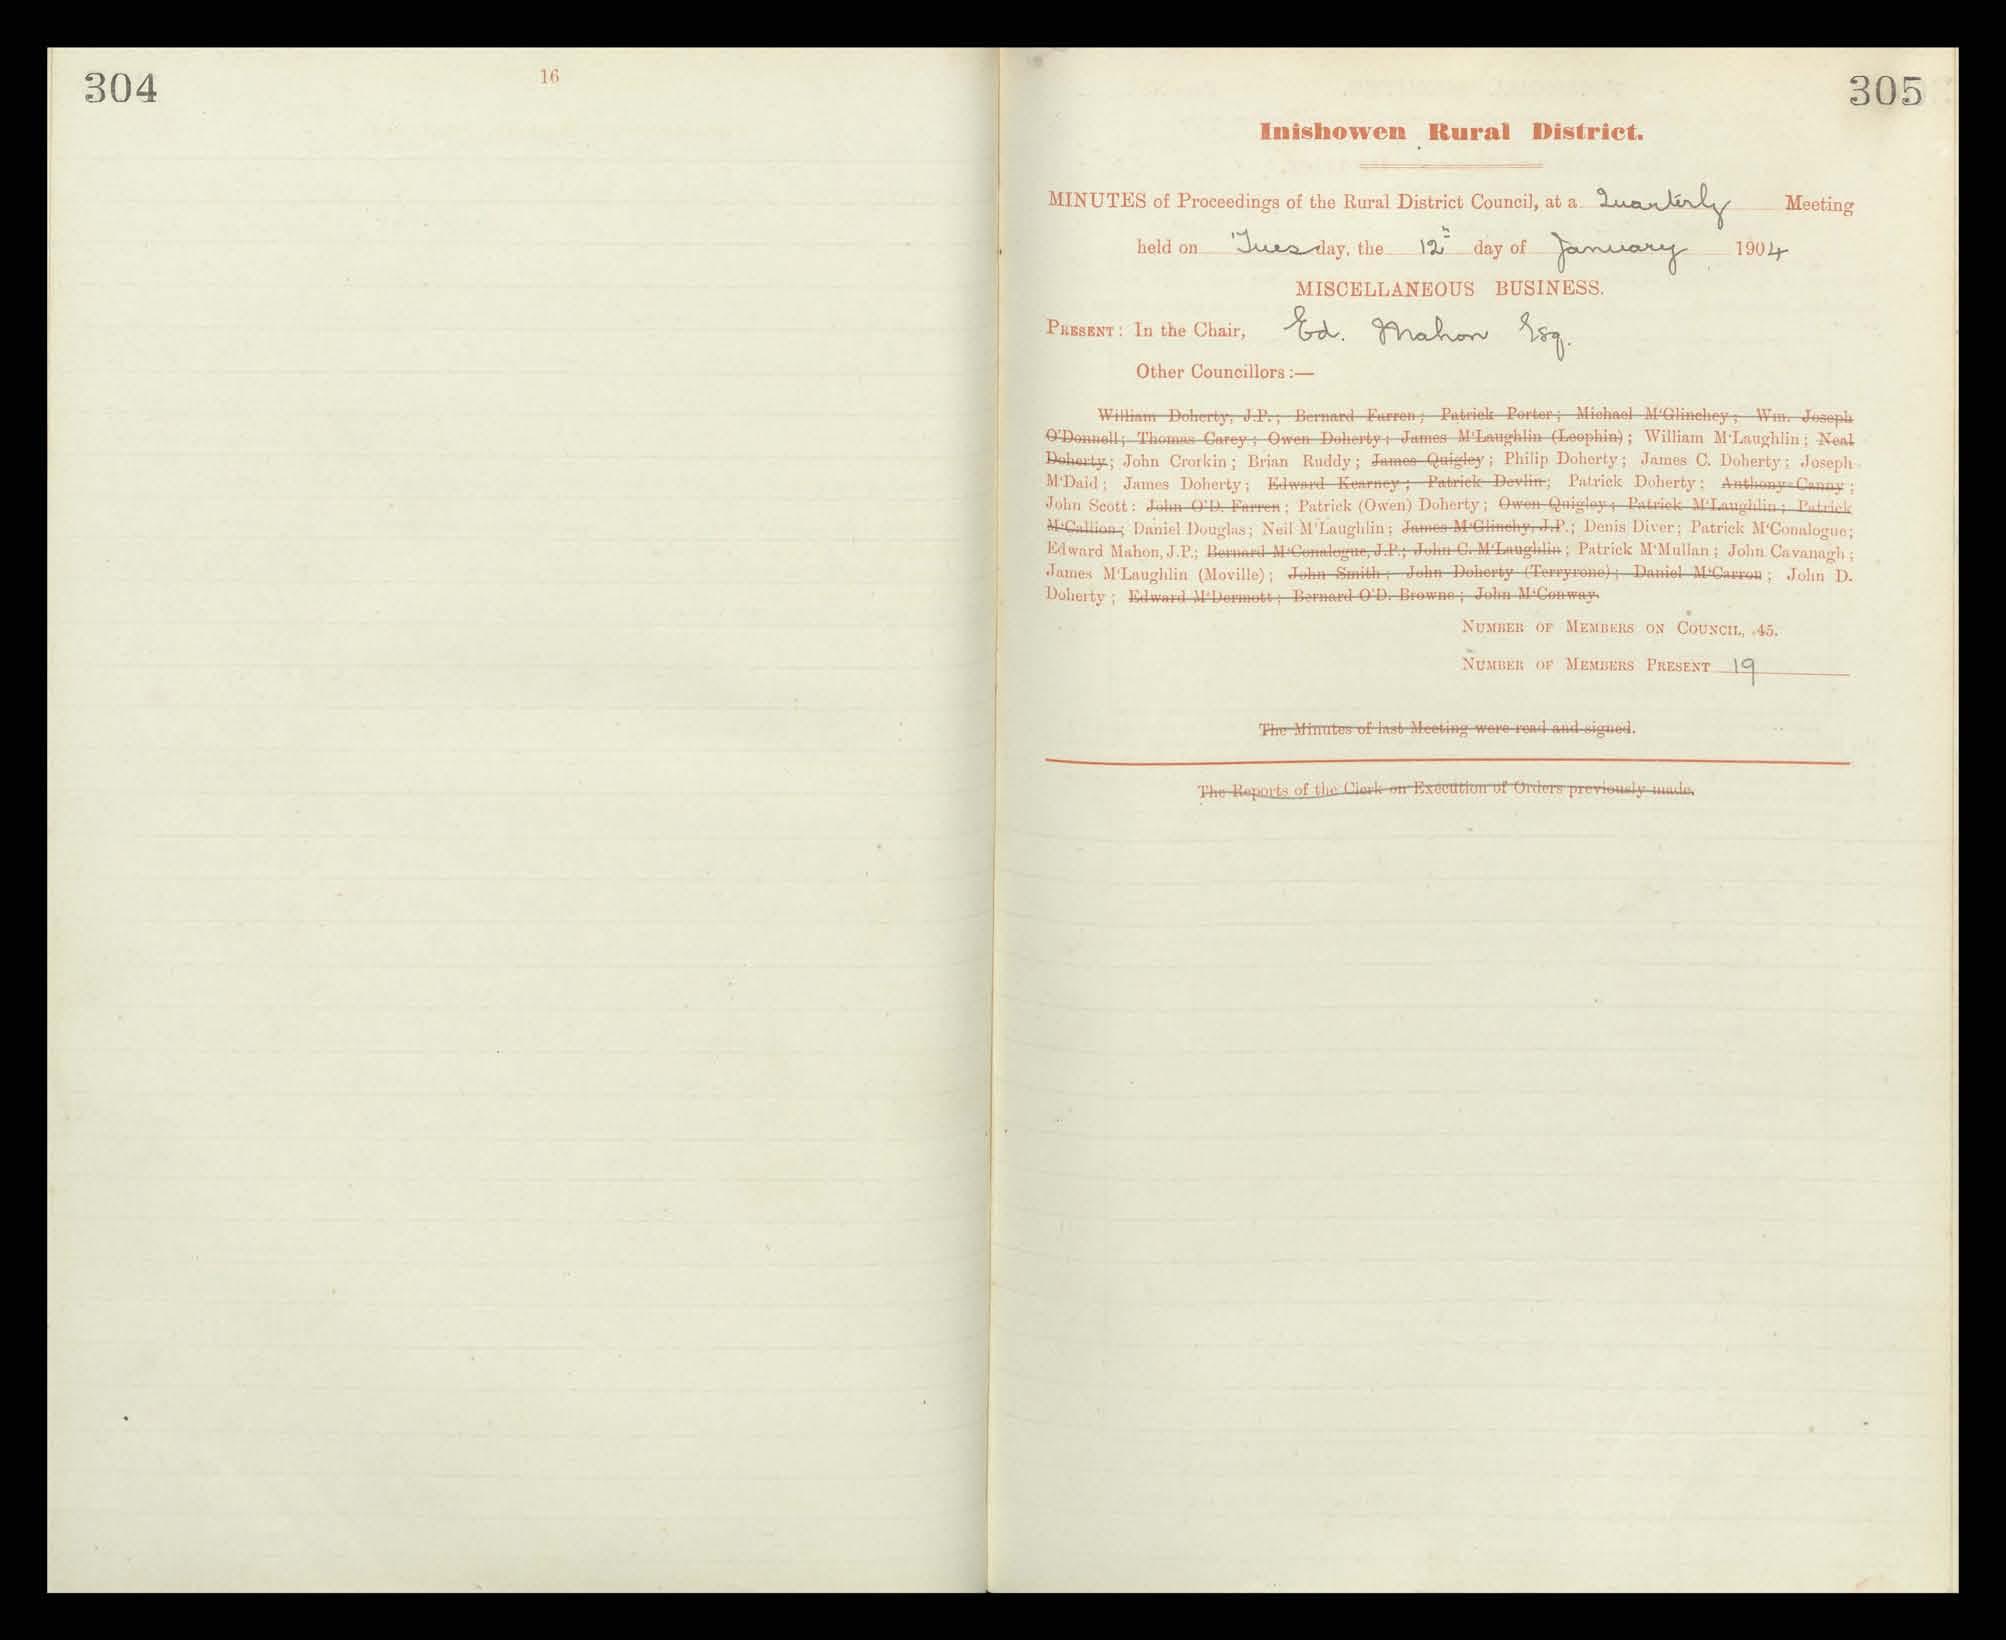 304
16
305
Inishowen Rural District.
MINUTES of Proceedings of the Rural District Council, at a Quarterly Meeting
held on Tuesday, the 12th day of January 1904
MISCELLANEOUS BUSINESS.
PRESENT: In the Chair, Ed. Mahon Esq.
Other Councillors :—
William Doherty, J.P.; Bernard Farren; Patrick Porter; Michael M‘Glinchey; Wm. Joseph
O'Donnell; Thomas Carey; Owen Doherty; James M‘Laughlin (Leophin); William M‘Laughlin; Neal
Doherty; John Crorkin; Brian Ruddy; James Quigley; Philip Doherty; James C. Doherty; Joseph
M‘Daid; James Doherty; Edward Kearney; Patrick Devlin; Patrick Doherty; Anthony Canny;
John Scott: John O'D. Farren; Patrick (Owen) Doherty; Owen Quigley; Patrick M‘Laughlin; Patrick
M‘Callion; Daniel Douglas; Neil M‘Laughlin; James M‘Glinchy, J.P.; Denis Diver; Patrick M‘Conalogue;
Edward Mahon, J.P.; Bernard M‘Conalogue, J.P.; John C. M‘Laughlin; Patrick M‘Mullan; John Cavanagh;
James M‘Laughlin (Moville); John Smith; John Doherty (Terryrone); Daniel M‘Carron; John D.
Doherty; Edward M‘Dermott; Bernard O'D. Browne; John M‘Conway.
NUMBER OF MEMBERS ON COUNCIL, 45.
NUMBER OF MEMBERS PRESENT 19
The Minutes of last Meeting were read and signed.
The Reports of the Clerk on Execution of Orders previously made.